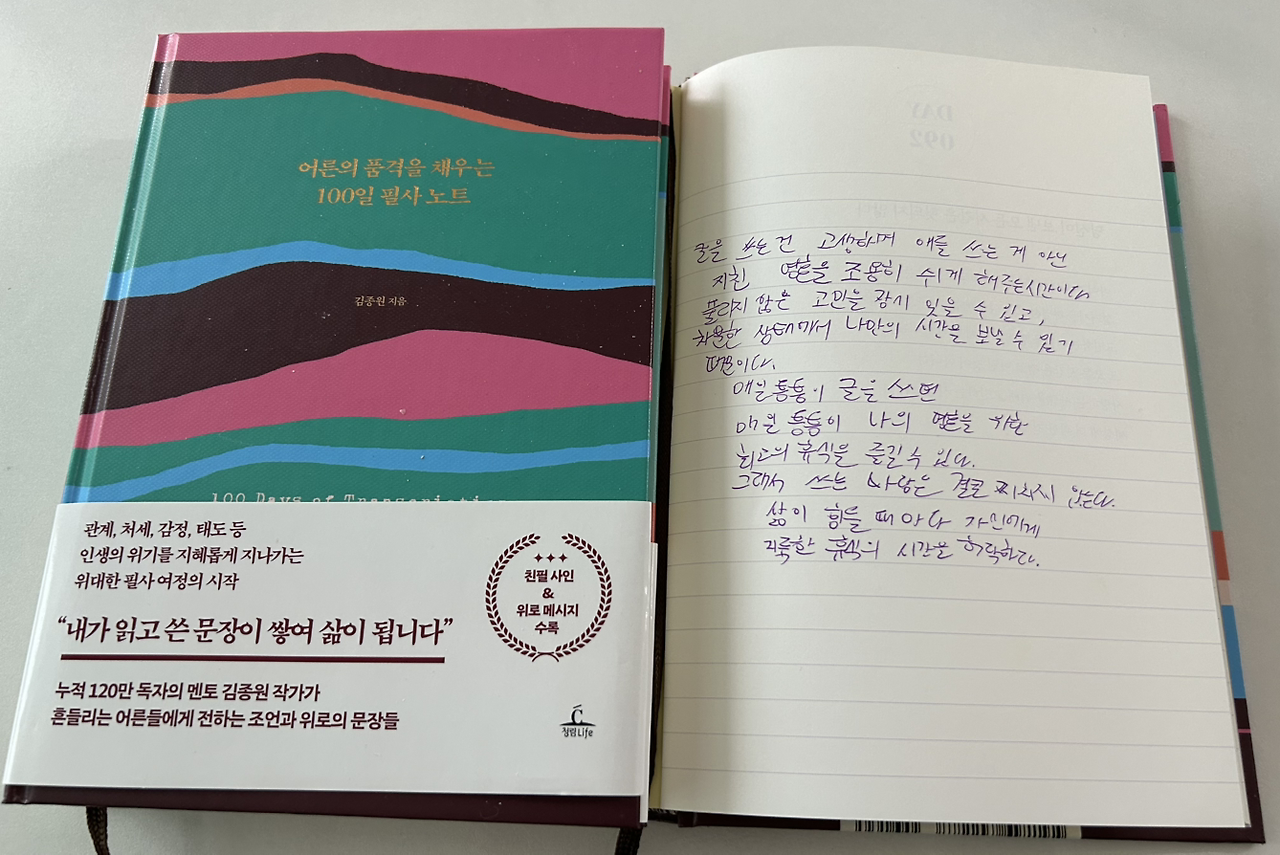 어른의 품격을 채우는
100일 필사 노트
김종원 지음
100 Days of Transcription
관계, 처세, 감정, 태도 등
인생의 위기를 지혜롭게 지나가는
위대한 필사 여정의 시작
“내가 읽고 쓴 문장이 쌓여 삶이 됩니다”
누적 120만 독자의 멘토 김종원 작가가
흔들리는 어른들에게 전하는 조언과 위로의 문장들
친필 사인
&
위로 메시지
수록
청림Life
DAY
092
글을 쓰는 건 고생하며 애를 쓰는 게 아닌
지친 영혼을 조용히 쉬게 해주는시간이다
풀리지 않은 고민을 잠시 잊을 수 있고,
차분한 상태에서 나만의 시간을 보낼 수 있기
때문이다.
매일 틈틈이 글을 쓰면
매일 틈틈이 나의 영혼을 위한
최고의 휴식을 즐길 수 있다.
그래서 쓰는 사람은 결코 지치지 않는다.
삶이 힘들 때마다 자신에게
지극한 휴식의 시간을 허락하다.